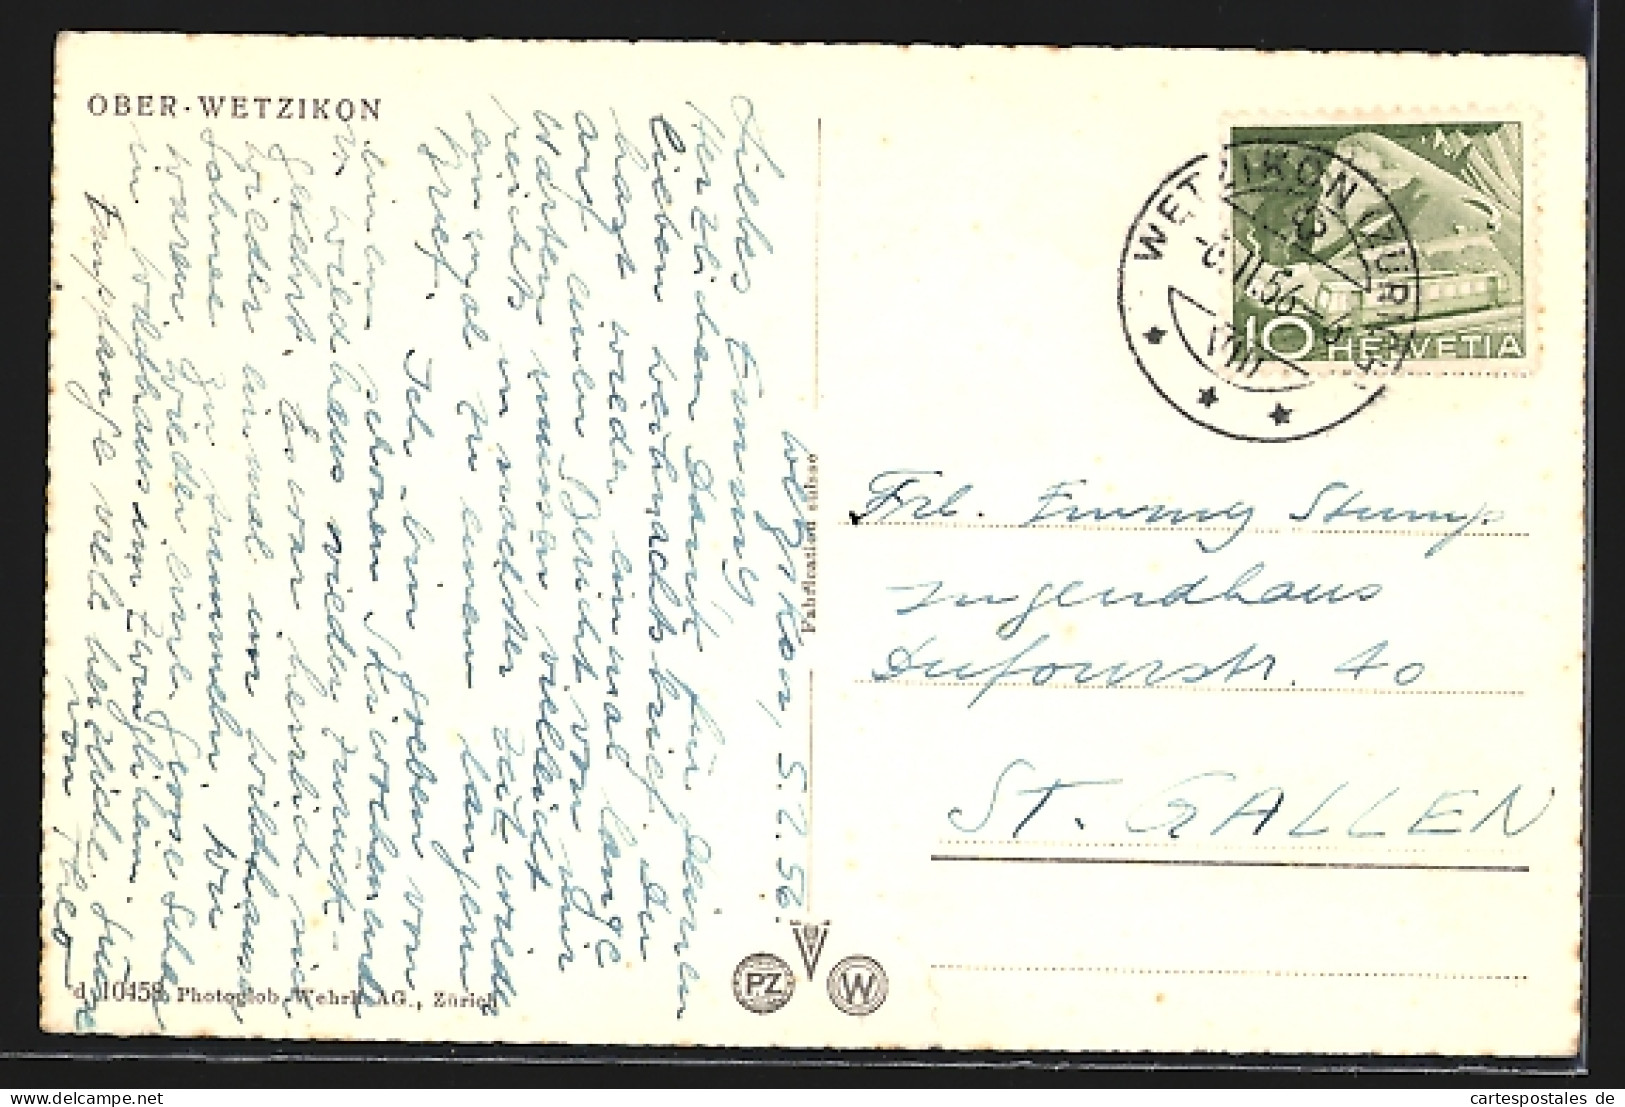 OBER-WETZIKON
Wetzikon, 5.2.56.
Liebes Emmy,
Herzlichen Dank für Deinen
lieben Weihnachtsbrief. Du
hast wieder einmal lange
auf einen Bericht von mir
warten müssen, vielleicht
reichts in nächster Zeit wieder
ein mal zu einem langen
Brief.
Ich bin soeben von
einem schönen Skiwochenende
in Wildhaus wieder zurück-
gekehrt. Es war herrlich sich
wieder einmal in Wildhaus
Sohne zu tummeln. Wir
waren wieder eine grosse Schar
im Zwingliheim.
Empfange viele herzliche Grüsse
von Theo
d 10458 Photoglob-Wehrli AG., Zürich
Fabrication suisse
PZ
W
WETZIKON (ZÜRICH)
-6.II.56
VIII
10 HELVETIA
Frl. Emmy Stump
Jugendhaus
Dufourstr. 40
ST. GALLEN
www.cartespostales.de